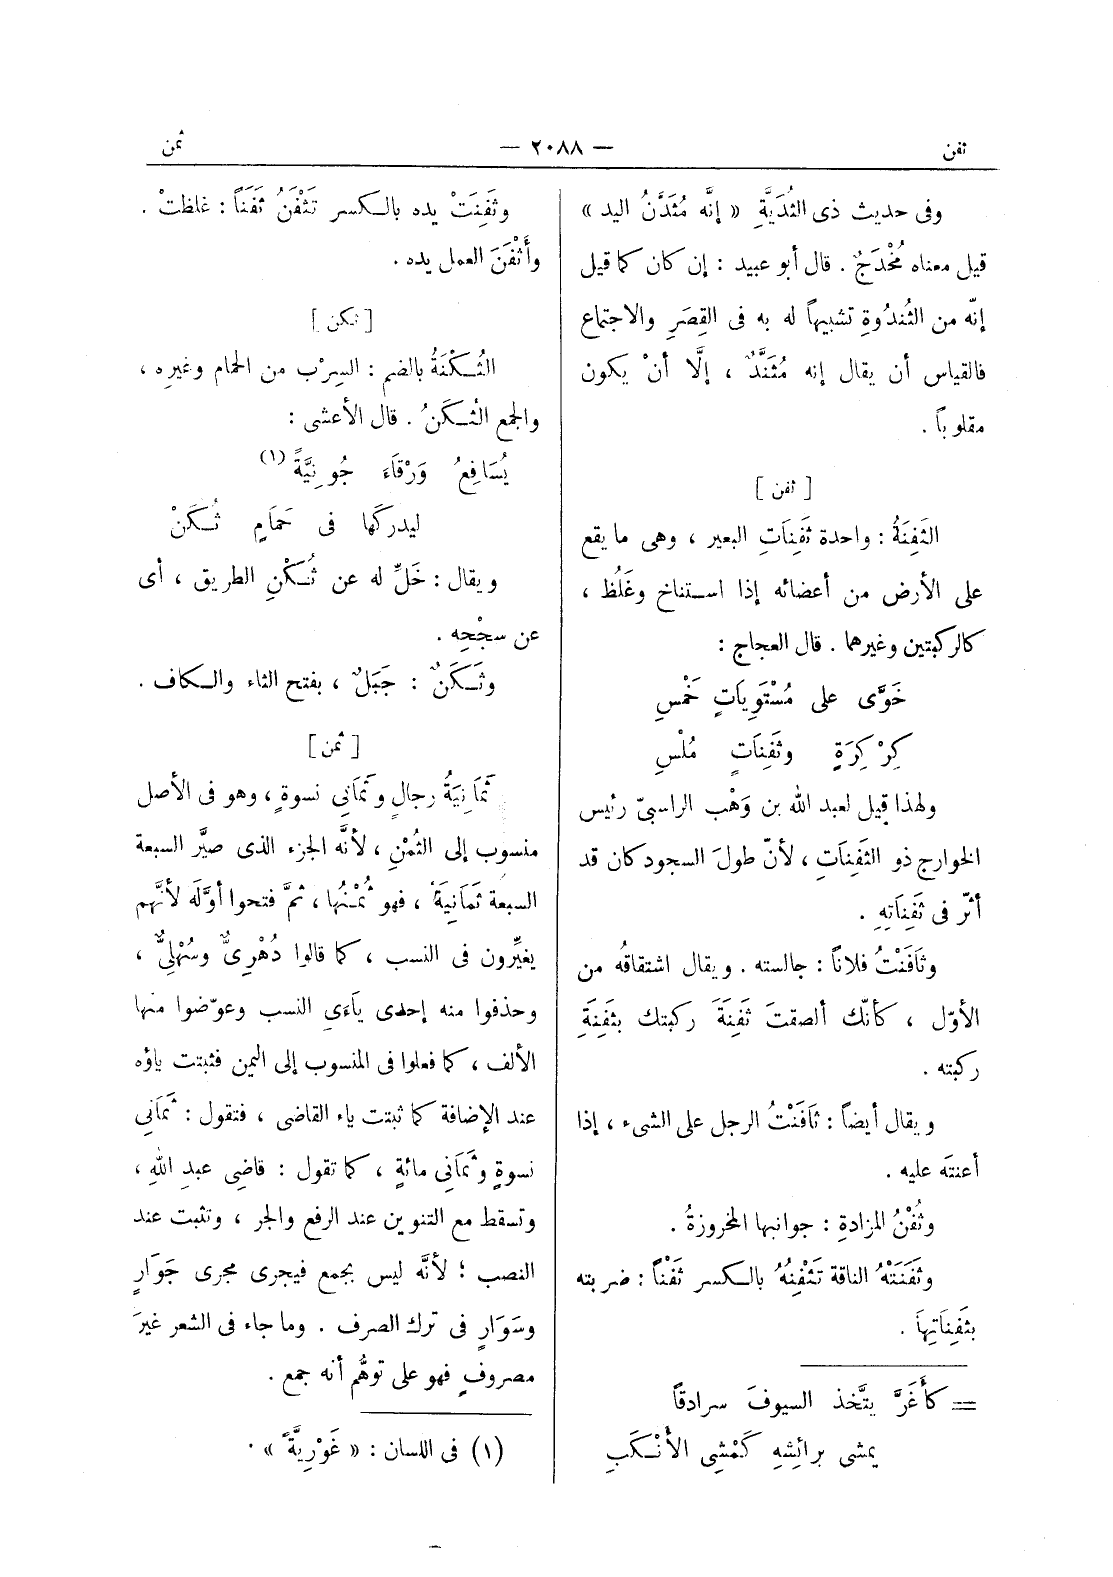 ثفن
— ٢٠٨٨ —
ثمن
وفى حديث ذى الثُدَيَّةِ « إنَّه مُثَدَّنُ اليد »
قيل معناه مُخْدَجٌ . قال أبو عبيد : إن كان كما قيل
إنّه من الثُندُوةِ تشبيهاً له به فى القِصَرِ والاجتماع
فالقياس أن يقال إنه مُثَنَّدٌ ، إلَّا أنْ يكون
مقلوباً .
[ ثفن ]
الثَفِنَةُ : واحدة ثَفِنَاتِ البعير ، وهى ما يقع
على الأرض من أعضائه إذا استناخ وغَلُظ ،
كالركبتين وغيرهما . قال العجاج :
خَوَّى على مُسْتَوِيَاتٍ خَمْسِ
كِرْكِرَةٍ وثَفِنَاتٍ مُلْسِ
ولهذا قيل لعبد الله بن وَهْب الراسبىّ رئيس
الخوارج ذو الثَفِنَاتِ ، لأنّ طولَ السجود كان قد
أثّر فى ثَفِنَاتِهِ .
وثَافَنْتُ فلاناً : جالسته . ويقال اشتقاقُه من
الأوّل ، كأنّك ألصقتَ ثَفِنَةَ ركبتك بثَفِنَةِ
ركبته .
ويقال أيضاً : ثَافَنْتُ الرجل على الشىء ، إذا
أعنتَه عليه .
وثُفْنُ المزادةِ : جوانبها المخروزةُ .
وثَفَنَتْهُ الناقة تَثْفِنُهُ بالكسر ثَفْناً : ضربته
بثَفِنَاتِهَا .
= كأَغَرَّ يتَّخذ السيوفَ سرادقاً
يمشى برائِشِهِ كَمْشِى الأَنْكَبِ
وثَفِنَتْ يده بالكسر تَثْفَنُ ثَفَناً : غلظتْ .
وأَثْفَنَ العمل يده .
[ ثكن ]
الثُكْنَةُ بالضم : السِرْب من الحمام وغيرِه ،
والجمع الثُكَنُ . قال الأعشى :
يُسَافِعُ وَرْقَاءَ جُونِيَّةً (١)
ليدركَها فى حَمَامٍ ثُكَنْ
ويقال : خَلِّ له عن ثُكْنِ الطريق ، أى
عن سجْحِه .
وثَكَنٌ : جَبَلٌ ، بفتح الثاء والكاف .
[ ثمن ]
ثَمَانِيَةُ رجالٍ وثَمَانِى نسوةٍ ، وهو فى الأصل
منسوب إلى الثُمْنِ ، لأنَّه الجزء الذى صيَّر السبعة
السبعة ثَمَانِيَةً ، فهو ثُمْنُهَا ، ثمَّ فتحوا أوَّلَه لأنَّهم
يغيِّرون فى النسب ، كما قالوا دُهْرِىٌّ وسُهْلِىٌّ ،
وحذفوا منه إحدى ياءَىِ النسب وعوّضوا منها
الألف ، كما فعلوا فى المنسوب إلى اليمن فثبتت ياؤه
عند الإضافة كما ثبتت ياء القاضى ، فتقول : ثَمَانِى
نسوةٍ وثَمَانِى مائةٍ ، كما تقول : قاضِى عبدِ اللهِ ،
وتسقط مع التنوين عند الرفع والجر ، وتثبت عند
النصب ؛ لأنَّه ليس بجمع فيجرى مجرى جَوَارٍ
وسَوَارٍ فى ترك الصرف . وما جاء فى الشعر غيرَ
مصروفٍ فهو على توهُّم أنه جمع .
(١) فى اللسان : « غَوْرِيَّةً » .